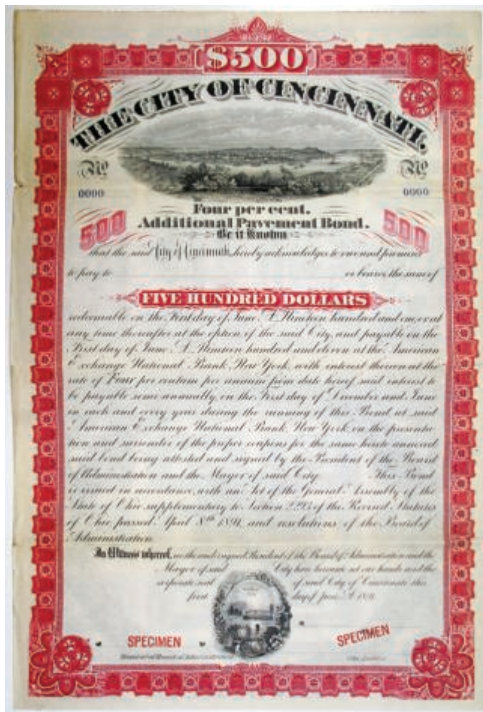 $500
THE CITY OF CINCINNATI.
No No
0000 0000
Four per cent.
500 Additional Pavement Bond. 500
Be it Known
that the said City of Cincinnati hereby acknowledges to owe and promises
to pay to or bearer, the sum of
FIVE HUNDRED DOLLARS
redeemable on the First day of June, A.D. Nineteen hundred and one, or at
any time thereafter at the option of the said City, and payable on the
First day of June, A.D. Nineteen hundred and eleven at the American
Exchange National Bank, New York, with interest thereon at the
rate of Four per centum per annum from date hereof, said interest to
be payable semi-annually, on the First day of December and June
in each and every year during the running of this Bond at said
American Exchange National Bank, New York on the presenta-
tion and surrender of the proper coupons for the same hereto annexed,
said bond being attested and signed by the President of the Board
of Administration and the Mayor of said City. This Bond
is issued in accordance with an Act of the General Assembly of the
State of Ohio supplementary to Section of the Revised Statutes
of Ohio passed April 8th 1891, and resolutions of the Board of
Administration.
In Witness whereof, we the undersigned President of the Board of Administration and the
Mayor of said City have hereunto set our hands and the
corporate seal of said City of Cincinnati this
first day of June, A.D. 1891.
SPECIMEN SPECIMEN